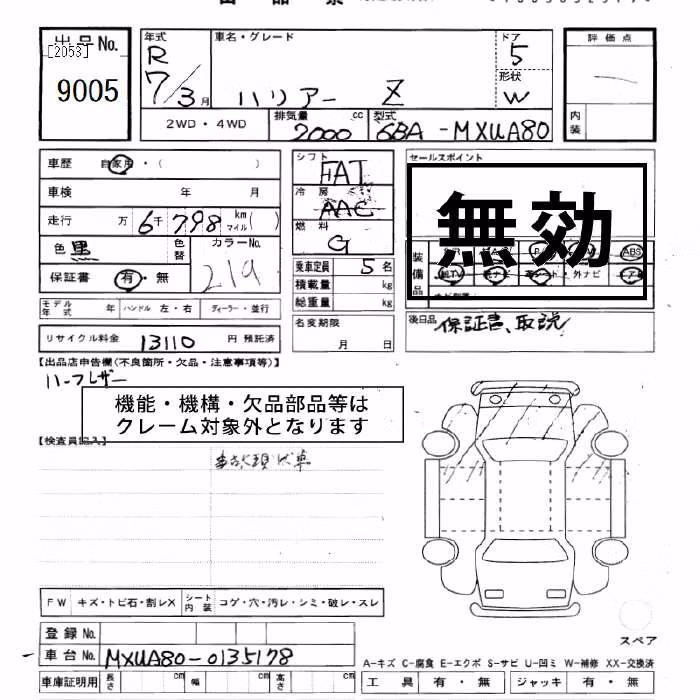 出品票
出品No. 年式 車名・グレード ドア 評価点
[2053] R 5
9005 7/3月 ハリアー Z 形状 W
2WD・4WD 排気量 cc 型式 内装
2000 6BA-MXUA80
車歴 自家用・( ) シフト FAT セールスポイント
車検 年 月 冷房 AAC 無効
走行 万 6千 798 km マイル ( ) 燃料 G
色 黒 色替 カラーNo. 装備品 ABS
保証書 有・無 219 乗車定員 5名 ・外ナビ
モデル年式 年 ハンドル 左・右 ディーラー・並行 積載量 kg
総重量 kg
リサイクル料金 13110 円 預託済 名変期限 月 日 後日品 保証書、取説
【出品店申告欄(不良箇所・欠品・注意事項等)】
ハーフレザー
機能・機構・欠品部品等は
クレーム対象外となります
【検査員記入】
事故現状車
FW キズ・トビ石・割レX シート内装 コゲ・穴・汚レ・シミ・破レ・スレ
登録No. スペア
車台No. MXUA80-0135178
A-キズ C-腐食 E-エクボ S-サビ U-凹ミ W-補修 XX-交換済
車庫証明用 長さ cm 幅 cm 高さ cm 工具 有・無 ジャッキ 有・無